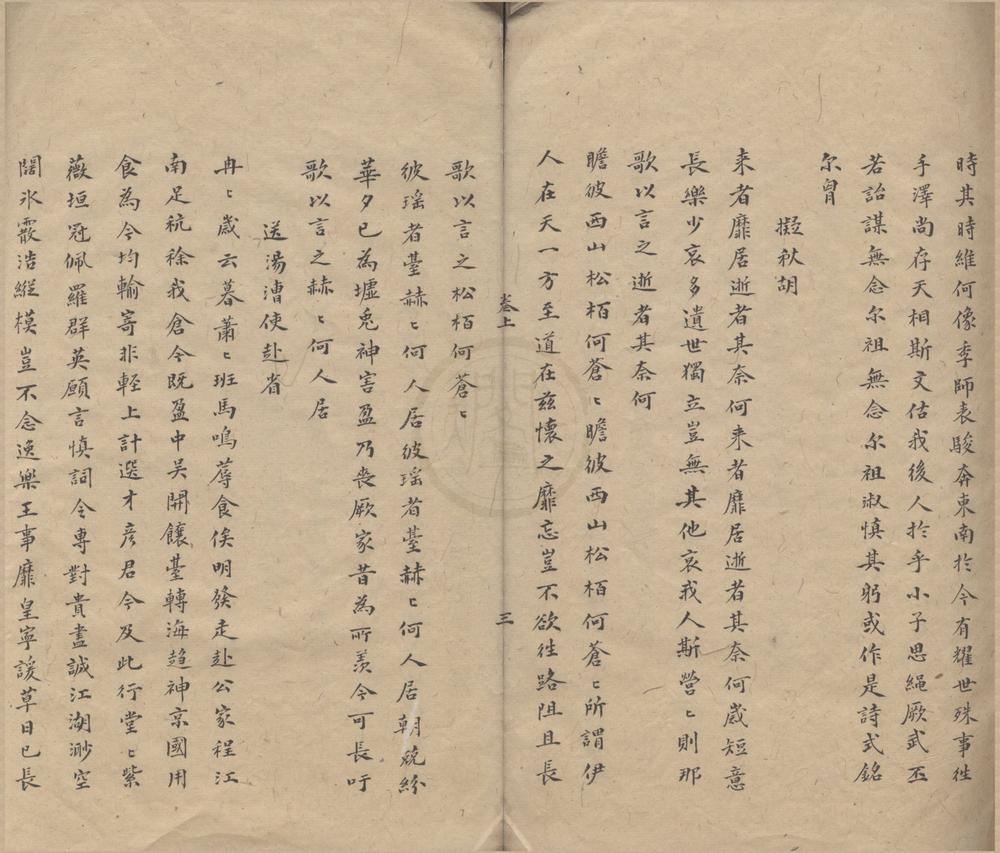 時其時維何像季師表駿奔東南於今有耀世殊事徃
手澤尚存天相斯文估我後人於乎小子思繩厥武丕
若詒謀無念尔祖無念尔祖淑慎其躬或作是詩式銘
尔胷
擬秋胡
来者靡居逝者其奈何来者靡居逝者其奈何歲短意
長樂少哀多遺世獨立豈無其他哀我人斯營〻則那
歌以言之逝者其奈何
瞻彼西山松栢何蒼〻瞻彼西山松栢何蒼〻所謂伊
人在天一方至道在兹懷之靡忘豈不欲徃路阻且長
卷上
三
歌以言之松栢何蒼〻
彼瑶者臺赫〻何人居彼瑶者臺赫〻何人居朝兢紛
華夕已為墟鬼神害盈乃喪厥家昔為所羡今可長吁
歌以言之赫〻何人居
送湯漕使赴省
冉〻歲云暮蕭〻班馬鳴蓐食俟明發走赴公家程江
南足秔稌我倉今既盈中吴開饟臺轉海趋神京國用
食為今均輸寄非輕上計選才彦君今及此行堂〻紫
薇垣冠佩羅群英願言慎詞令專對貴盡誠江湖渺空
闊氷霰浩縱橫豈不念逸樂王事靡皇寧諼草日已長